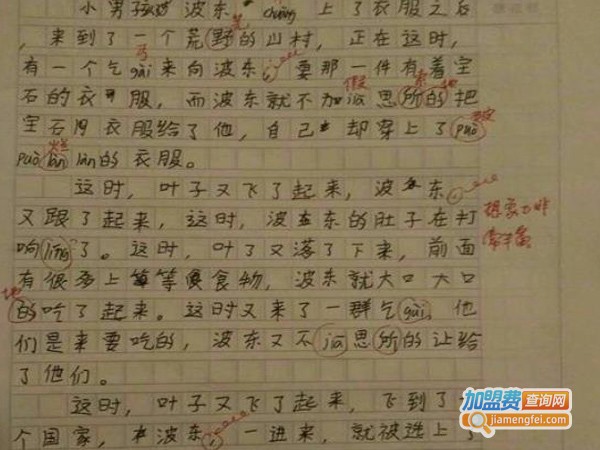 小男孩波东 chuāng 上了衣服之后
，来到了一个荒野的山村，正在这时，
有一个乞 gài 来向波东要那一件有着宝
石的衣服，而波东就不加 jiǎ 思所的把
宝石衣服给了他，自己却穿上了 può
può làn làn 的衣服。
这时，叶子又飞了起来，波东
又跟了起来，这时，波东的肚子在打
响 líng 了。这时，叶子又落了下来，前面
有很多上等食物，波东就大口大口
的吃了起来。这时又来了一群乞 gài，他
们是来要吃的，波东又不 jiā 思所的让给
了他们。
这时，叶子又飞了起来，飞到了一
个国家，波东一进来，就被选上了
丐
假
索
地
破
烂
想象力非
常丰富
地
加盟费查询网
jiamengfei.com